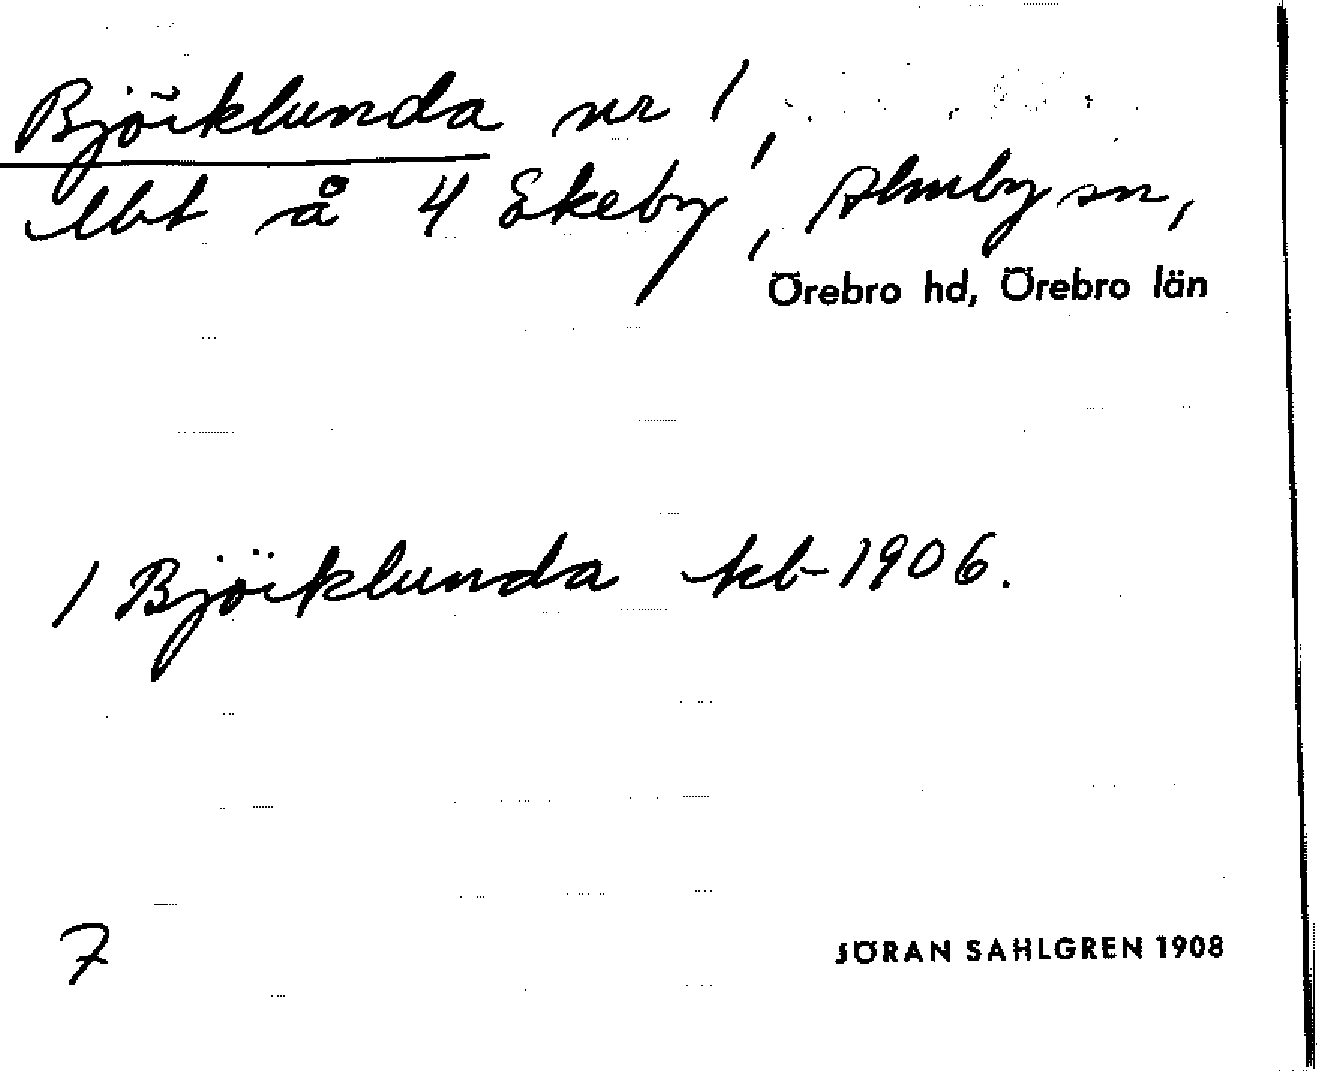 Björklunda nr 1,
lht å 4 Ekeby, Almby sn,
Örebro hd, Örebro län
1 Björklunda kb 1906.
7
JÖRAN SAHLGREN 1908